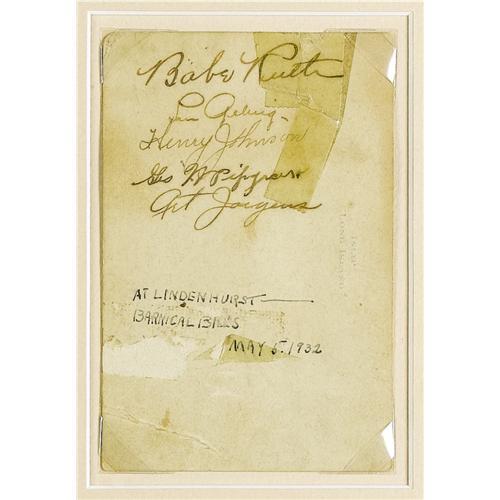 Babe Ruth
Lou Gehrig
Henry Johnson
Geo W Pipgras
Art Jorgens
AT LINDENHURST
BARNICAL BILLS
MAY 5. 1932
LONG ISLAND